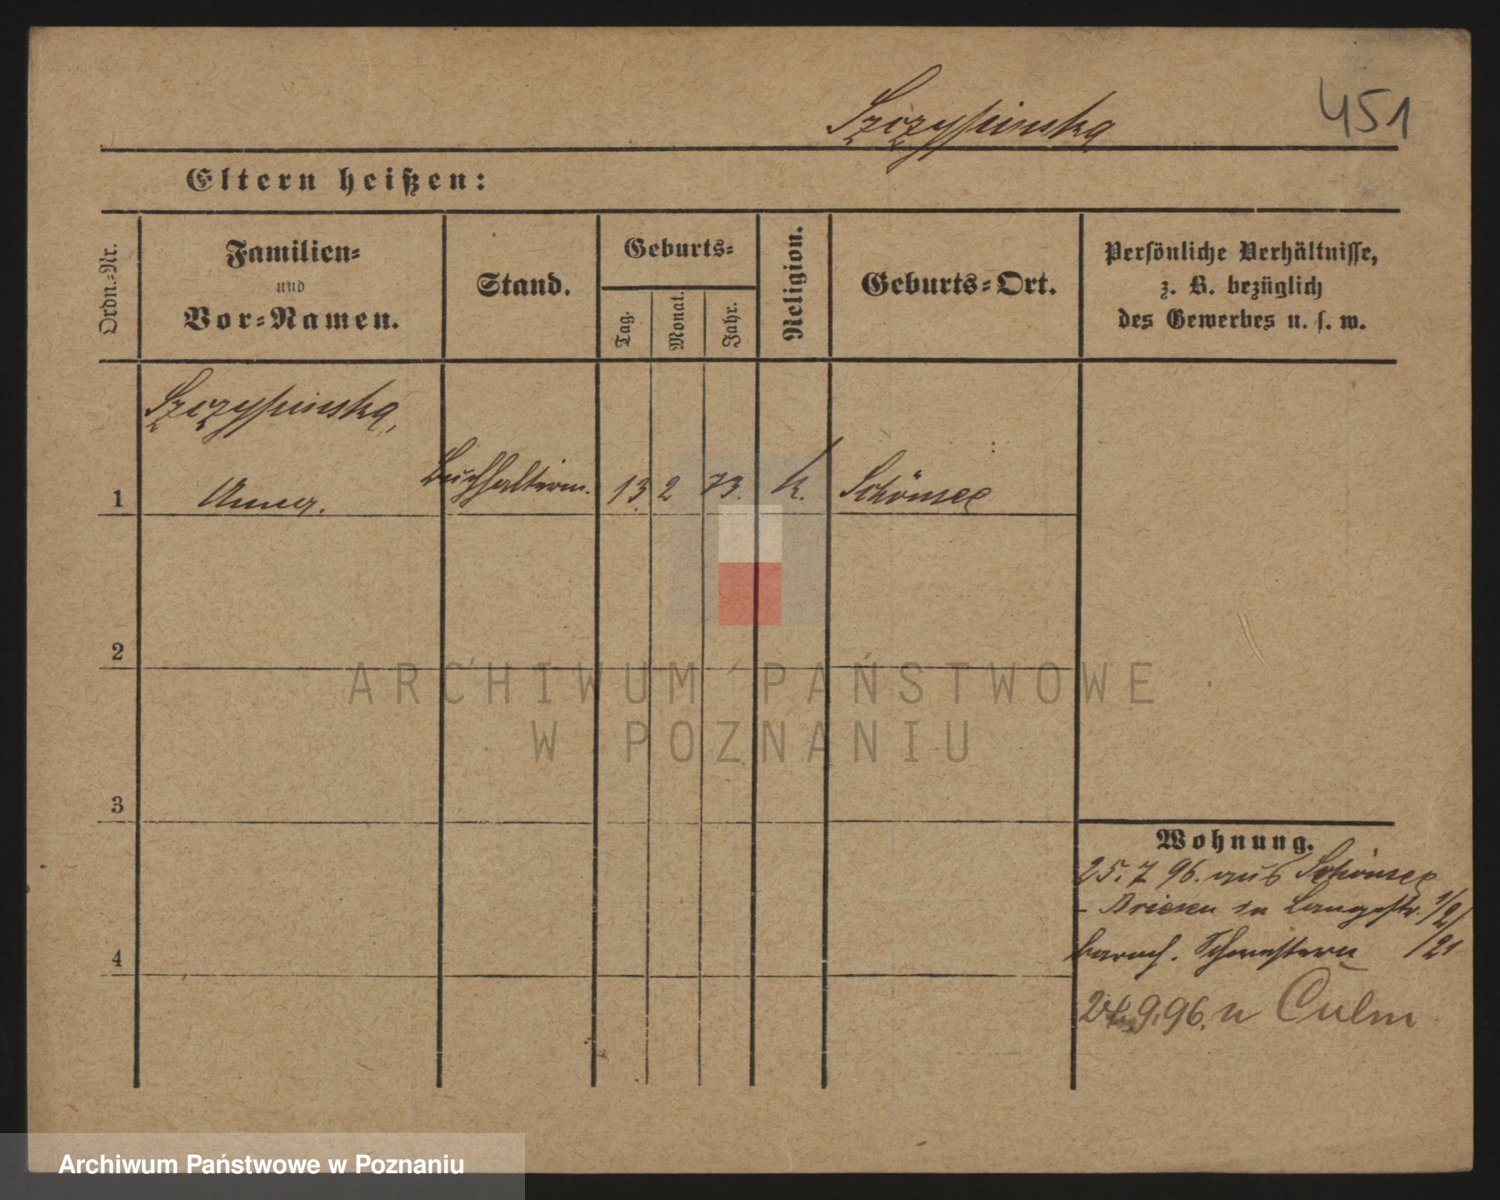 Szczypinska
451
Eltern heißen:
Ordn.-Nr.
Familien-
und
Vor-Namen.
Stand.
Geburts-
Tag.
Monat.
Jahr.
Religion.
Geburts-Ort.
Persönliche Verhältnisse,
z. B. bezüglich
des Gewerbes u. s. w.
Szczypinska,
1
Anna.
Buchhalterin.
13.
2
73.
k.
Schönsee
2
ARCHIWUM PAŃSTWOWE
W POZNANIU
3
Wohnung.
25. 7 96. aus Schönsee
- Briesen in Langestr. 1/2/
barmh. Schwestern /21
9.96. n Culm
4
Archiwum Państwowe w Poznaniu